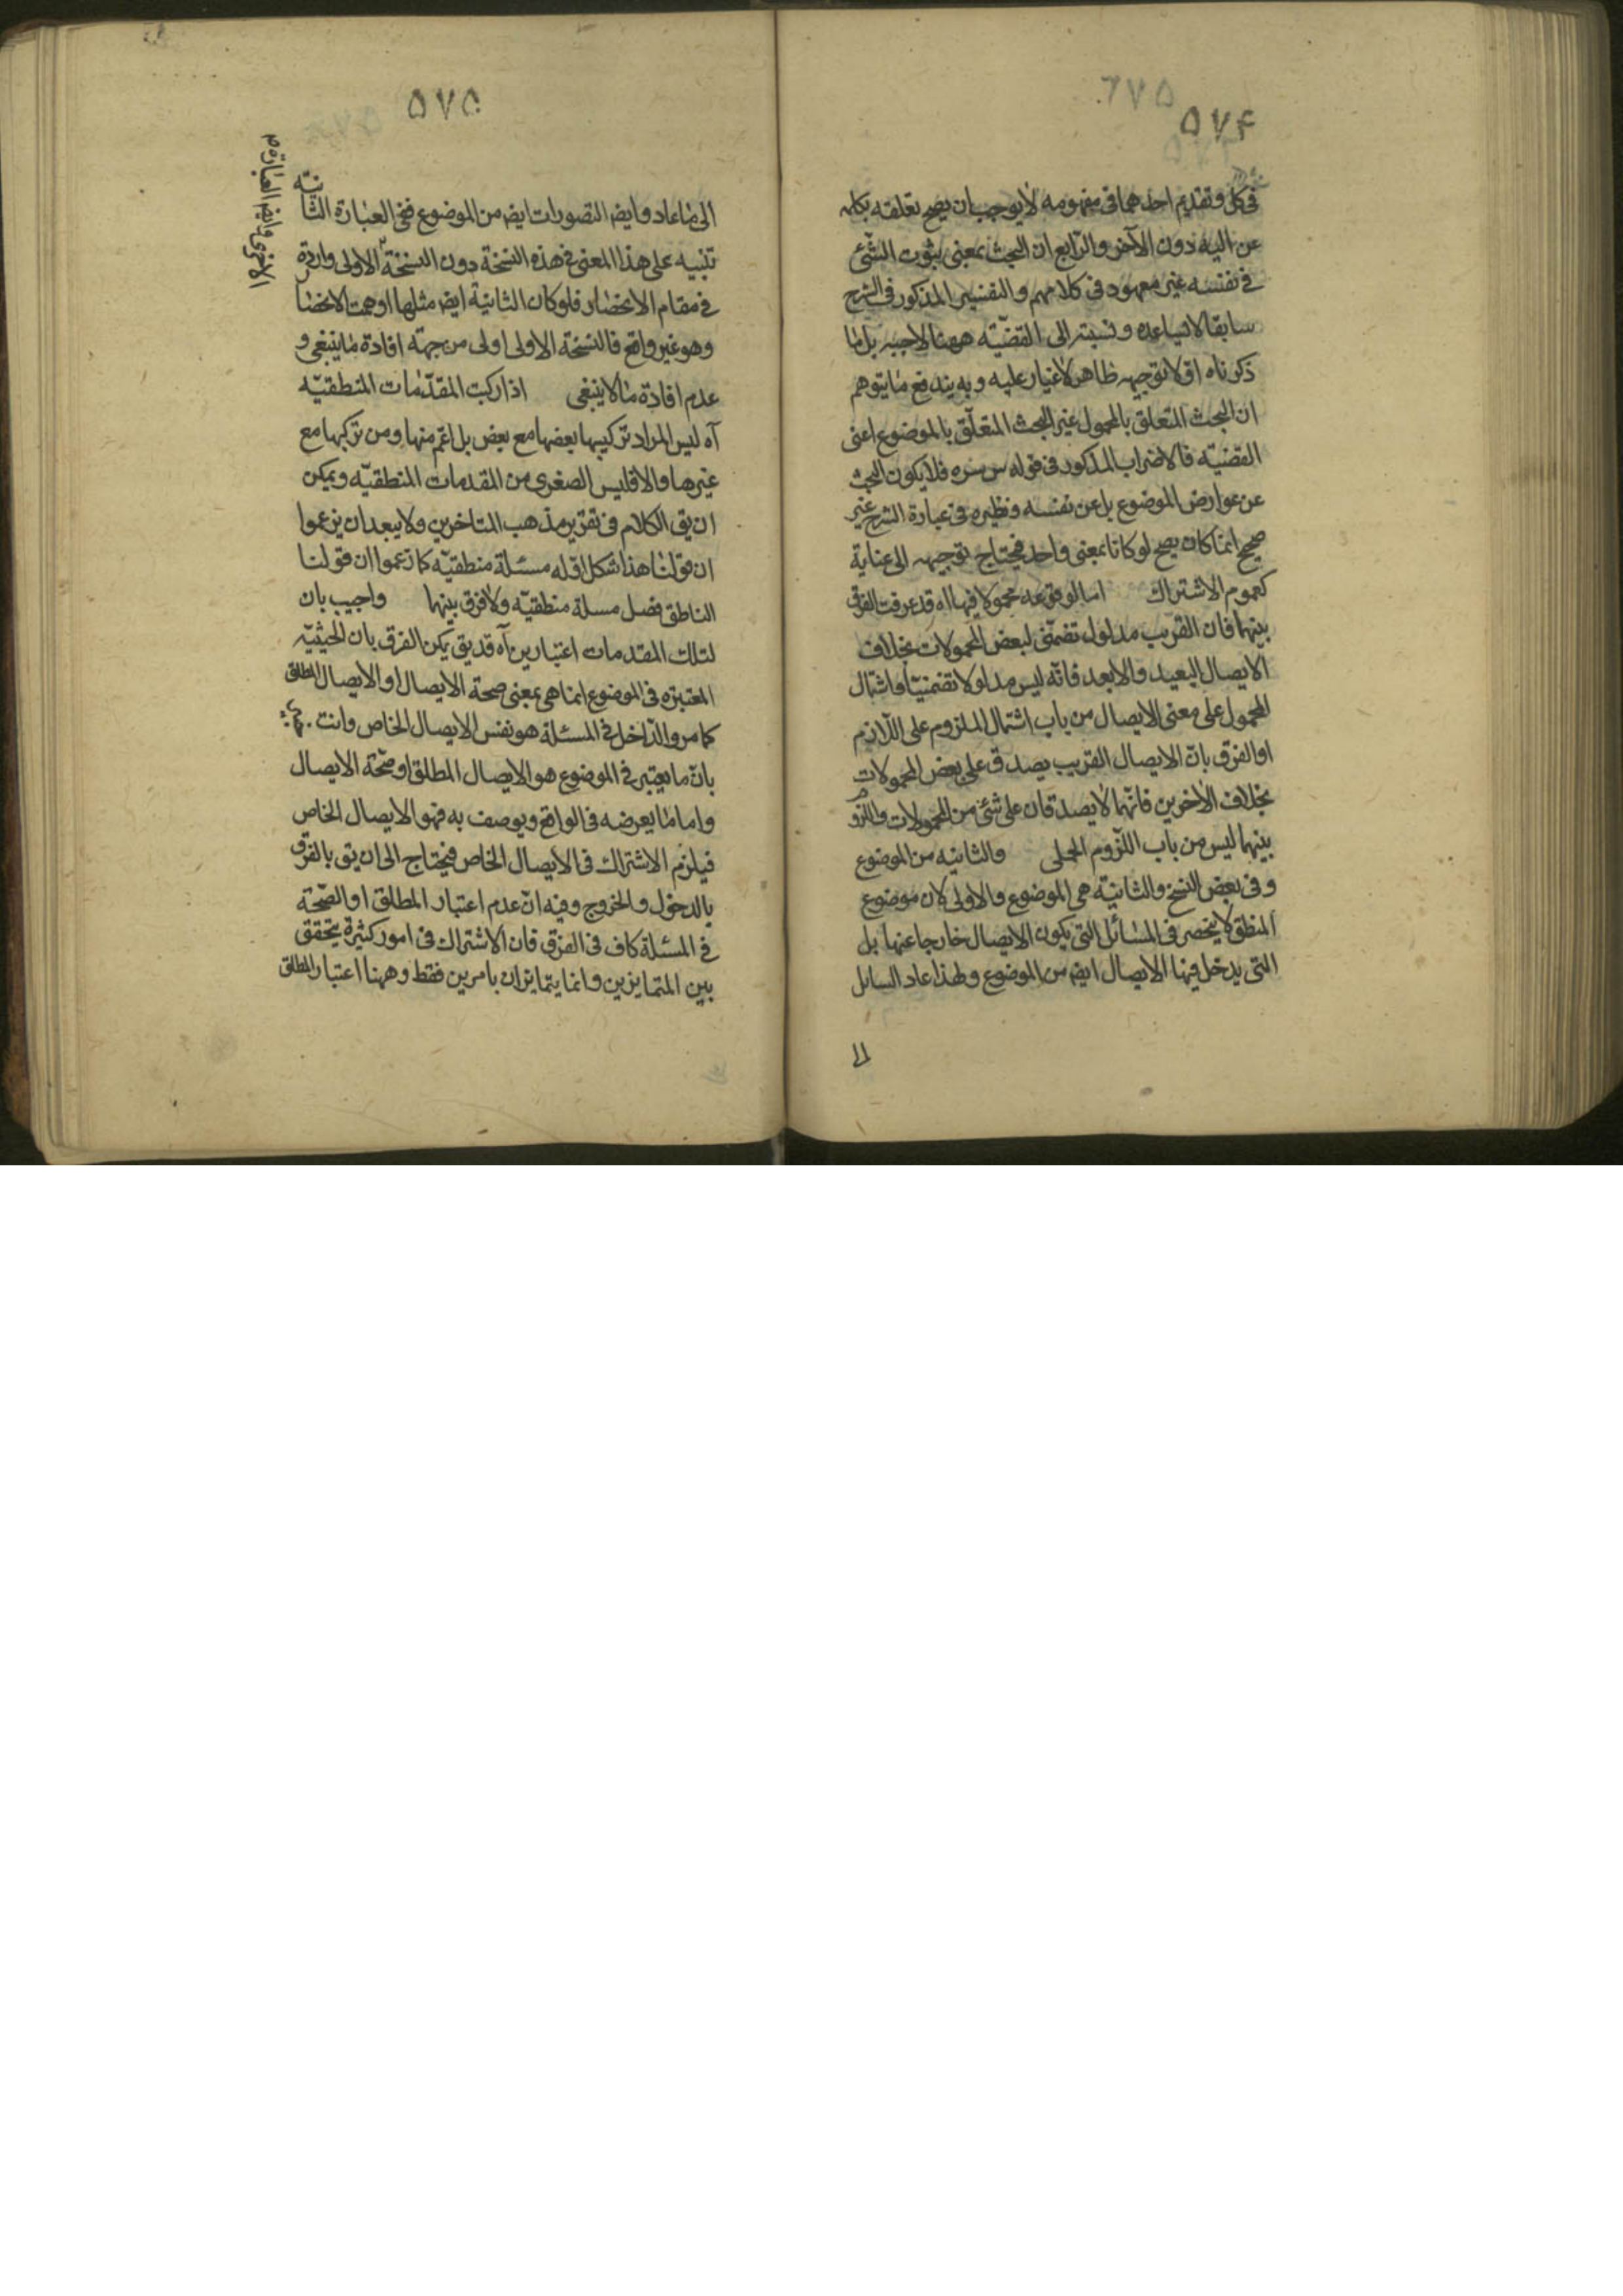 ٥٧۴
فى كل وتقديم احدهما فى مفهومه لا يوجب ان يصح تعلقه بكلمه
عن اليه دون الآخر والرّابع ان البحث بمعنى ثبوت الشّئ
فى نفسه غير معهود فى كلامهم والتفسير المذكور فى الشرح
سابقا لا يساعده ونسبته الى القضيّه ههنا لا وجيه بل ما
ذكرناه اولا توجيه ظاهر لا غبار عليه وبه يندفع ما يتوهم
ان البحث المتعلق بالمحمول غير البحث المتعلّق بالموضوع اعنى
القضيّه فالاضراب المذكور فى قوله س سره فلا يكون البحث
عن عوارض الموضوع بل عن نفسه ونظيره فى عبارة الشرح غير
صحيح انما كان يصح لو كانا بمعنى واحد فيحتاج توجيهه الى عناية
كعموم الاشتراك اما لوقوعه محمولا فيها اه قد عرفت الفرق
بينهما فان القريب مدلول تضمّنى لبعض المحمولات بخلاف
الايصال البعيد والابعد فانّه ليس مدلولا تضمنيّا واشتمال
المحمول على معنى الايصال من باب اشتمال الملزوم على اللّازم
او الفرق بان الايصال القريب يصدق على بعض المحمولات
بخلاف الاخرين فانّهما لا يصدقان على شئ من المحمولات واللزوم
بينهما ليس من باب اللّزوم الحملى والثانيه من الموضوع
وفى بعض النسخ والثانيّة هى الموضوع والاولى لان موضوع
المنطق لا ينحصر فى المسائل التى يكون الايصال خارجا عنها بل
التى يدخل فيها الايصال ايضا من الموضوع ولهذا عاد السايل
الى
٥٧٥
الى ما عاد وايضا التصورات ايضا من الموضوع ففى العبارة الثانية
تنبيه على هذا المعنى فى هذه النسخة دون النسخة الاولى واردة
فى مقام الانحصار فلو كان الثانية ايضا مثلها اوهمت الانحصا
وهو غير واقع فالنسخة الاولى اولى من جهة افادة ما ينبغى و
عدم افادة ما لا ينبغى اذا ركبت المقدّمات المنطقيّه
آه ليس المراد تركيبها بعضها مع بعض بل اعّم منها ومن تركيبها مع
غيرها والا فليس الصغرى من المقدمات المنطقيّه ويمكن
ان يق الكلام فى تقرير مذهب المتاخرين ولا يبعد ان يزعموا
ان قولنا هذا شكل اوّله مسئلة منطقيّه كما زعموا ان قولنا
الناطق فصل مسلة منطقيّه ولا فرق بينهما واجيب بان
لتلك المقدمات اعتبارين آه قد يق يمكن الفرق بان الحيثيّه
المعتبره فى الموضوع انما هى بمعنى صحة الايصال او الايصال المطلق
كما مر والدّاخل فى المسئلة هو نفس الايصال الخاص وانت
بانّ ما يعتبر فى الموضوع هو الايصال المطلق او صّحة الايصال
واما ما يعرضه فى الواقع ويوصف به فهو الايصال الخاص
فيلزم الاشتراك فى الايصال الخاص فيحتاج الى ان يق بالفرق
بالدخول والخروج وفيه انّ عدم اعتبار المطلق او الصّحة
فى المسئلة كاف فى الفرق فان الاشتراك فى امور كثيرة يتحقق
بين المتمايزين وانما يتمايزان بامرين فقط وههنا اعتبار المطلق